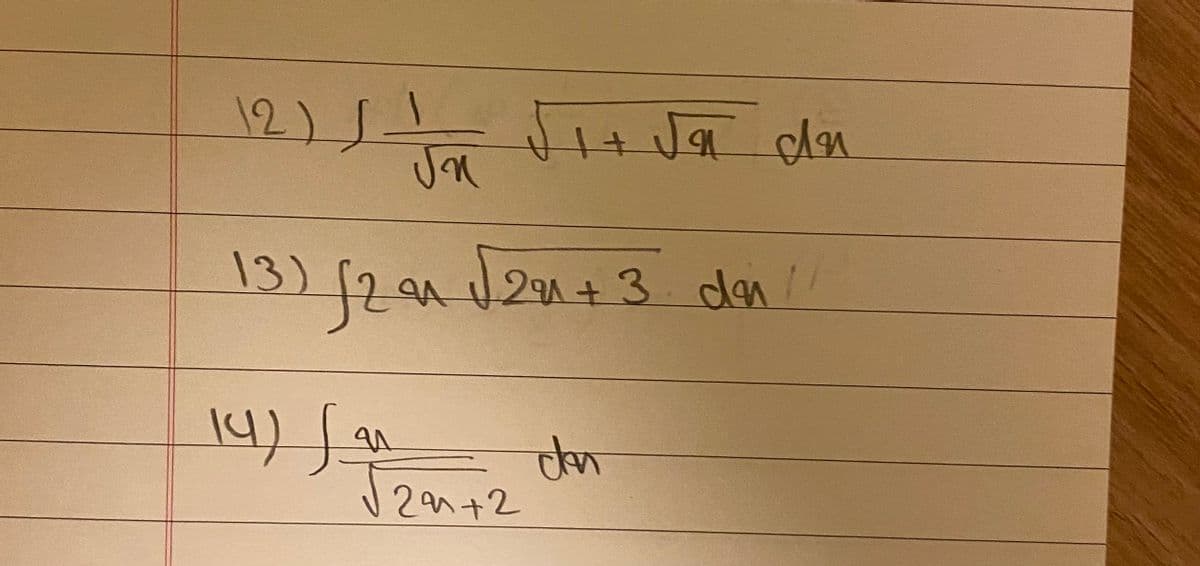 12) ∫ 1/√x √(1+√x) dx
13) ∫2x √(2x+3) dx
14) ∫ x/√(2x+2) dx